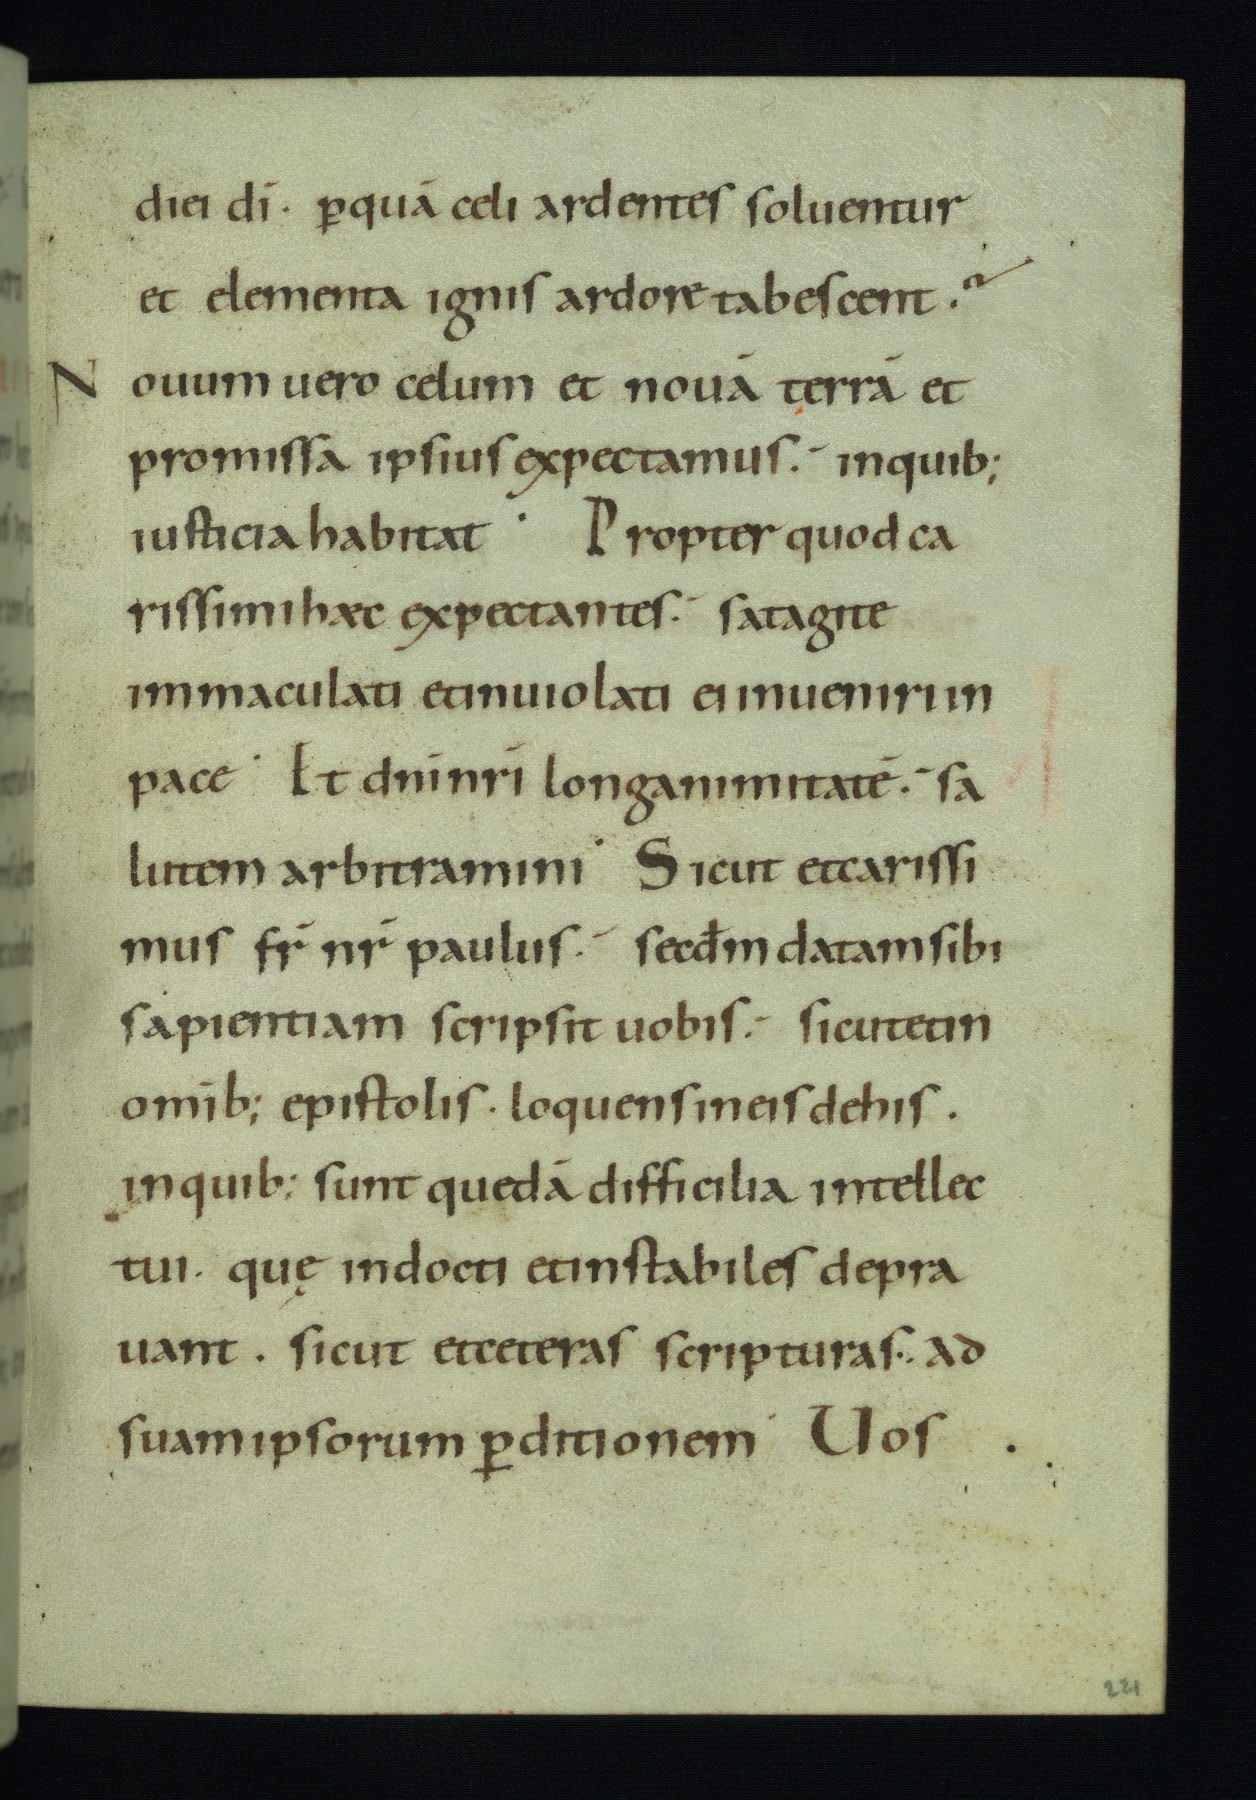 diei dī. ꝑquā celi ardentes soluentur
et elementa ignis ardore tabescent.
Nouum uero celum et nouā terrā et
promissa ipsius expectamus. inquib;
iusticia habitat. Propter quod ca
rissimi haec expectantes. satagite
immaculati et inuiolati ei inueniri in
pace. Et dnī nrī longanimitatē. sa
lutem arbitramini. Sicut et carissi
mus fr̄ nr̄ paulus. secđm datam sibi
sapientiam scripsit uobis. sicut et in
omīb; epistolis. loquens in eis de his.
inquib; sunt quedā difficilia intellec
tui. quę indocti et instabiles depra
uant. sicut et ceteras scripturas. ad
suam ipsorum ꝑditionem. Uos
221